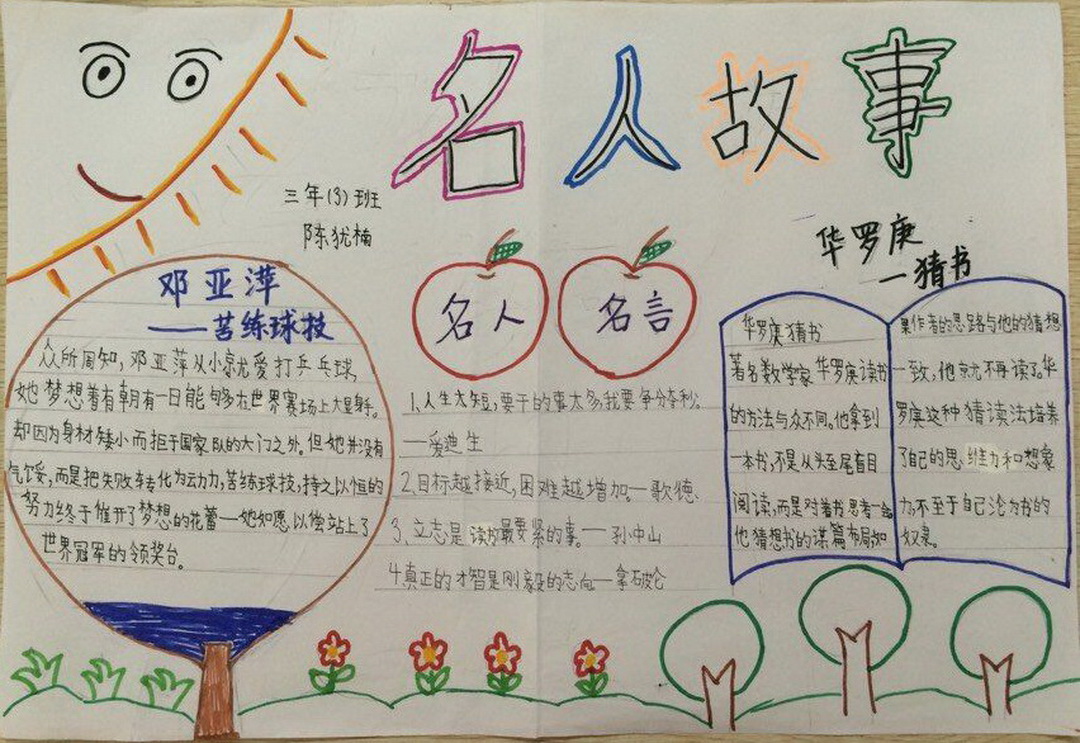 名人故事
三年(3)班
陈犹楠
邓亚萍
——苦练球技
众所周知,邓亚萍从小就尤爱打乒乓球,
她梦想着有朝有一日能够在世界赛场上大显身手。
却因为身材矮小而拒于国家队的大门之外。但她并没有
气馁,而是把失败转化为动力,苦练球技,持之以恒的
努力终于催开了梦想的花蕾—她如愿以偿站上了
世界冠军的领奖台。
名人
名言
1、人生太短,要干的事太多,我要争分夺秒。
—爱迪生
2、目标越接近,困难越增加。—歌德、
3、立志是读书最要紧的事。—孙中山
4、真正的才智是刚毅的志向—拿破仑
华罗庚
—猜书
华罗庚猜书
著名数学家华罗庚读书
的方法与众不同。他拿到
一本书,不是从头至尾盲目
阅读,而是对着书思考一会
他猜想书的谋篇布局如
果作者的思路与他的猜想
一致,他就不再读了。华
罗庚这种猜读法培养
了自己的思维力和想象
力,不至于自己沦为书的
奴隶。